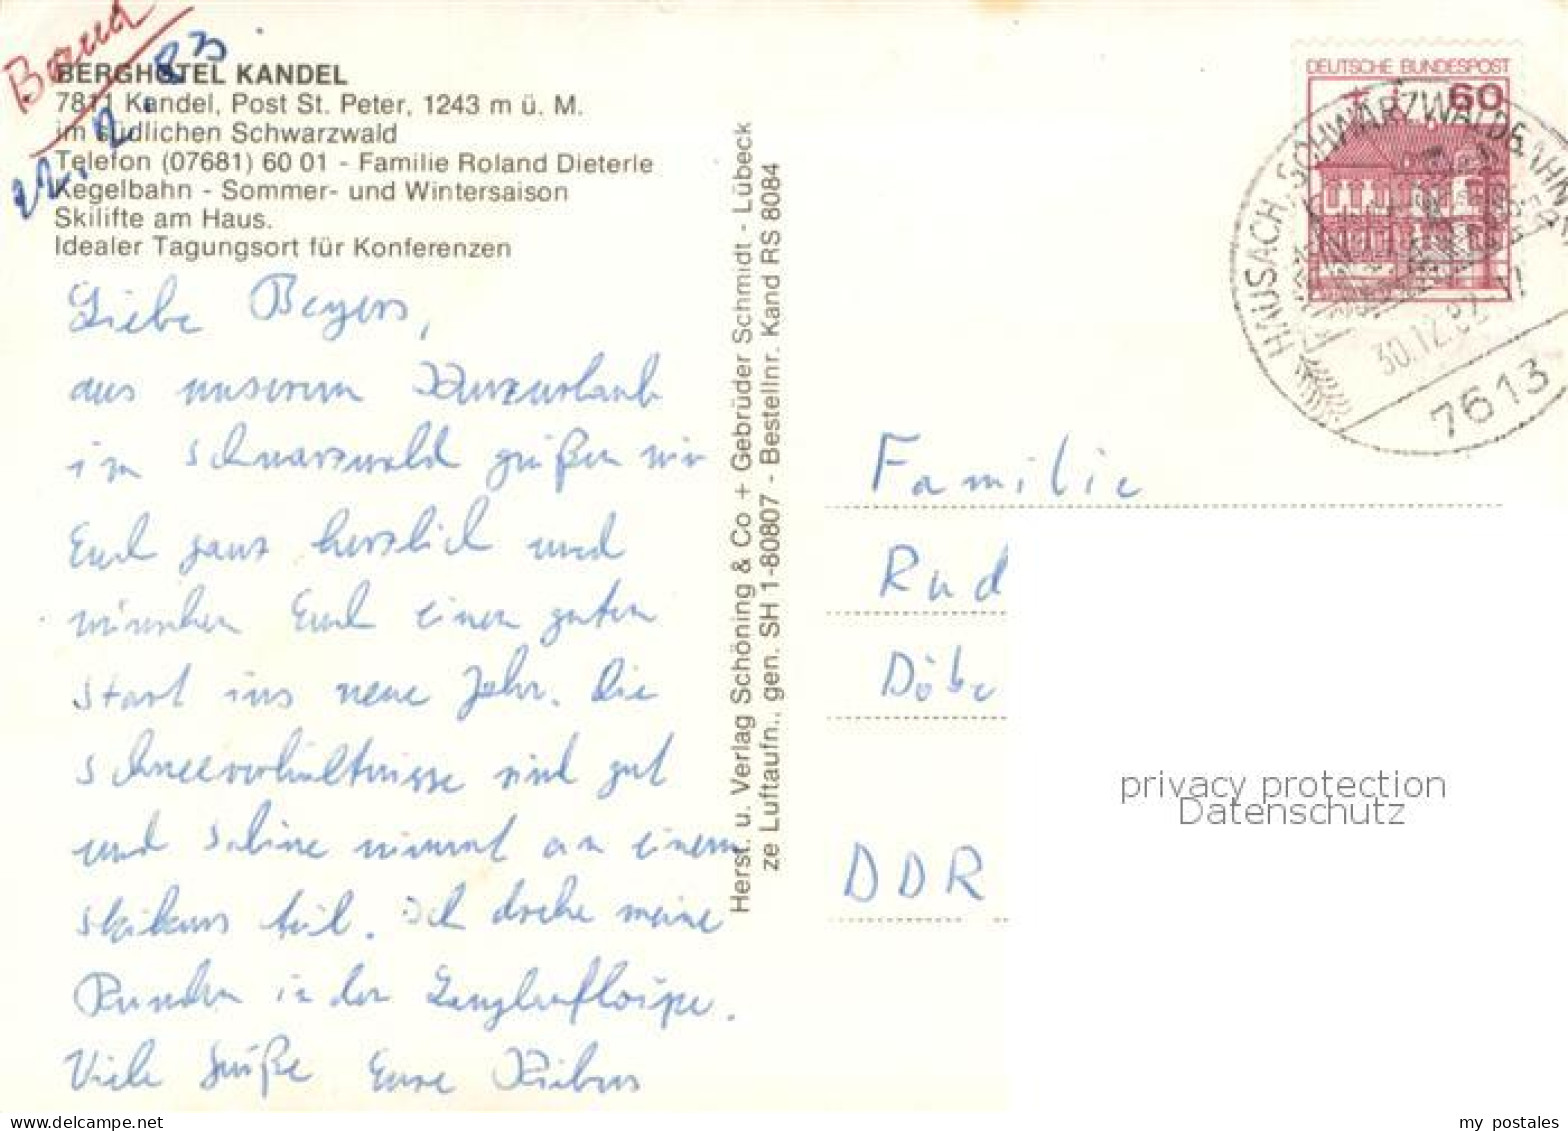 22. 2. 83
BERGHOTEL KANDEL
7811 Kandel, Post St. Peter, 1243 m ü. M.
im südlichen Schwarzwald
Telefon (07681) 60 01 - Familie Roland Dieterle
Kegelbahn - Sommer- und Wintersaison
Skilifte am Haus.
Idealer Tagungsort für Konferenzen
Liebe Beyers,
aus unserem Kurzurlaub
im Schwarzwald grüßen wir
Euch ganz herzlich und
wünschen Euch einen guten
Start ins neue Jahr. Die
Schneeverhältnisse sind gut
und Sabine nimmt an einem
Skikurs teil. Ich drehe meine
Runden in der Langlaufloipe.
Viele Grüße Eure
Herst. u. Verlag Schöning & Co + Gebrüder Schmidt - Lübeck
ze Luftaufn., gen. SH 1-80807 - Bestellnr. Kand RS 8084
DEUTSCHE BUNDESPOST
60
HAUSACH, SCHWARZWALDBAHN
30.12.82
7613
Familie
Rud
Döbe
DDR
privacy protection
Datenschutz
www.delcampe.net
my_postales